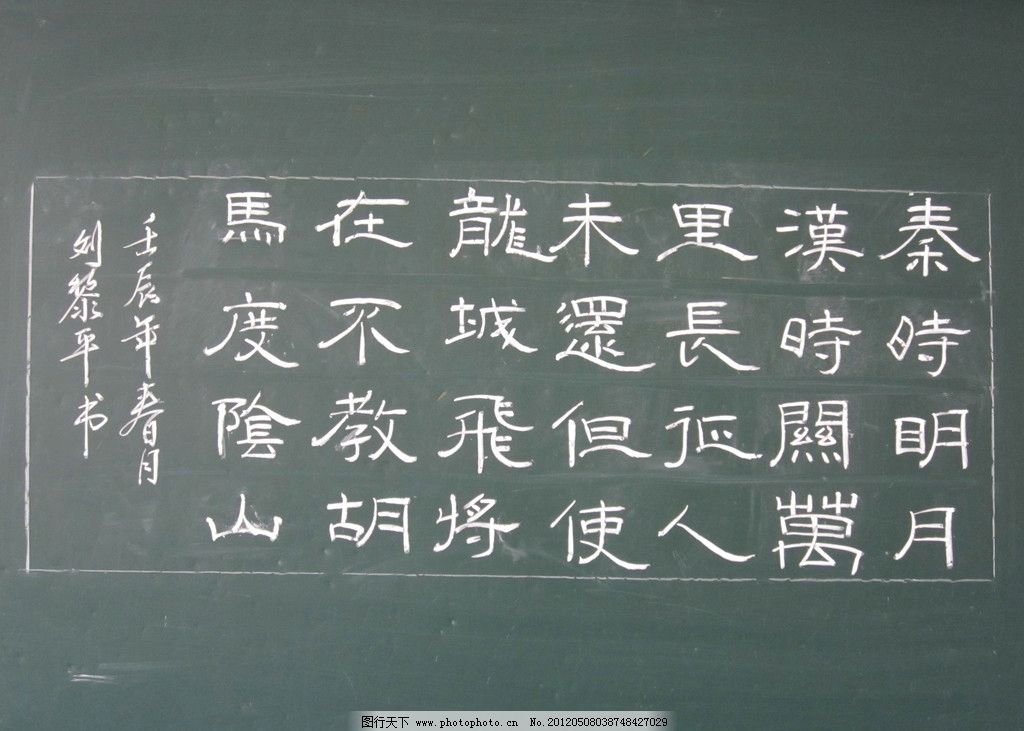 秦時明月
漢時關萬
里長征人
未還但使
龍城飛將
在不教胡
馬度陰山
壬辰年春月
刘黎平书
图行天下 www.photophoto.cn No.20120508038748427029